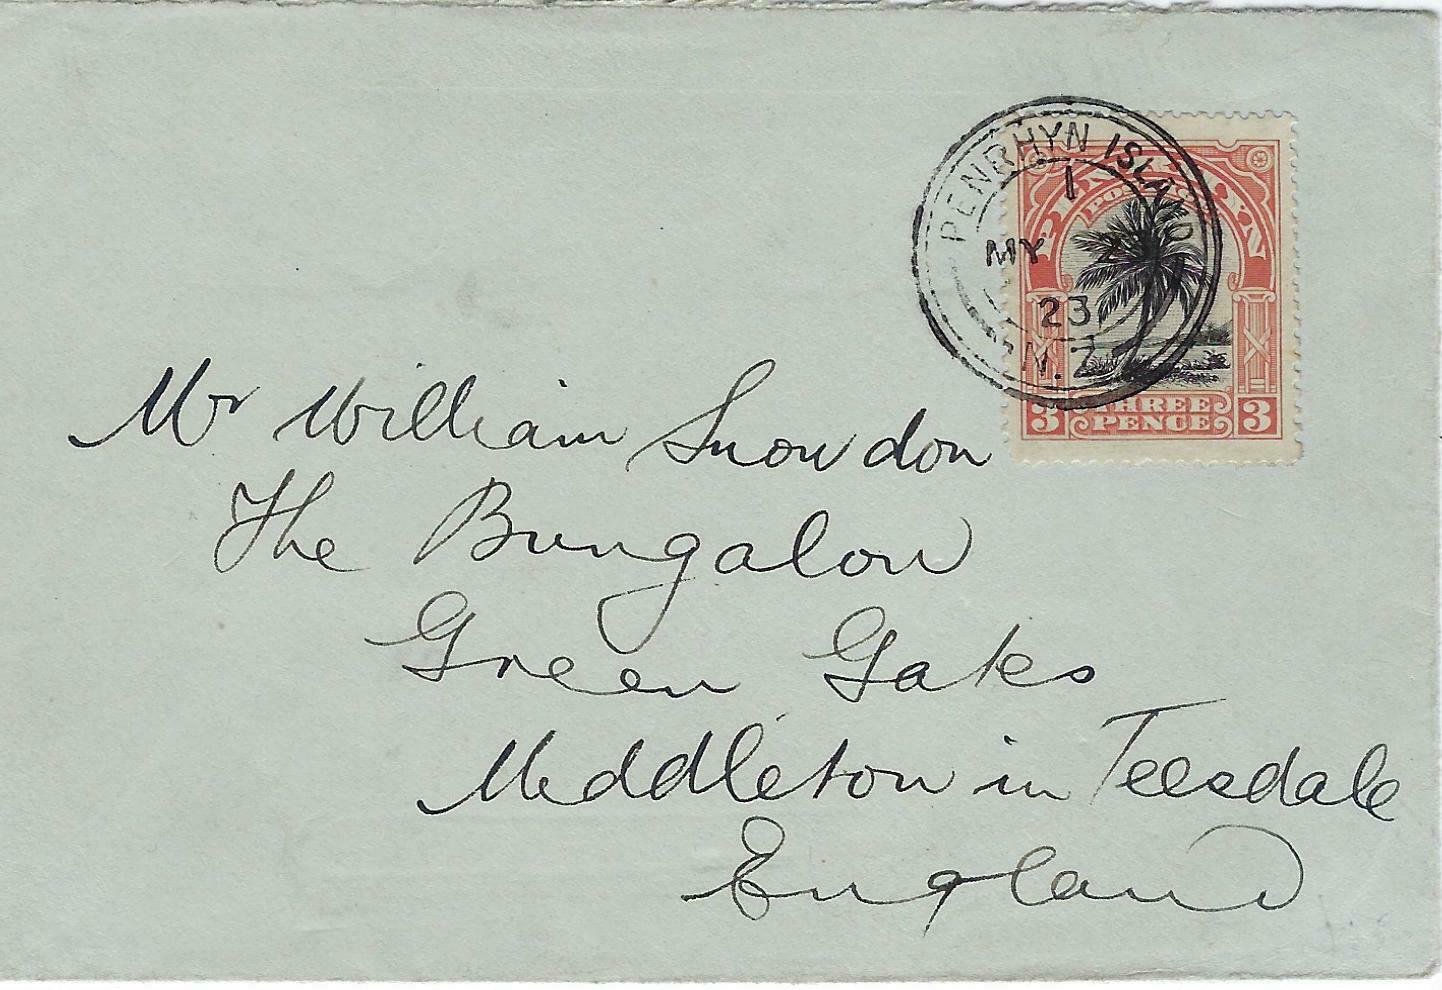 PENRHYN ISLAND
1
MY 2
23
N.Z
PENRHYN
POSTAGE
3 THREE PENCE 3
Mr William Snowdon
The Bungalow
Green Gates
Middleton in Teesdale
England